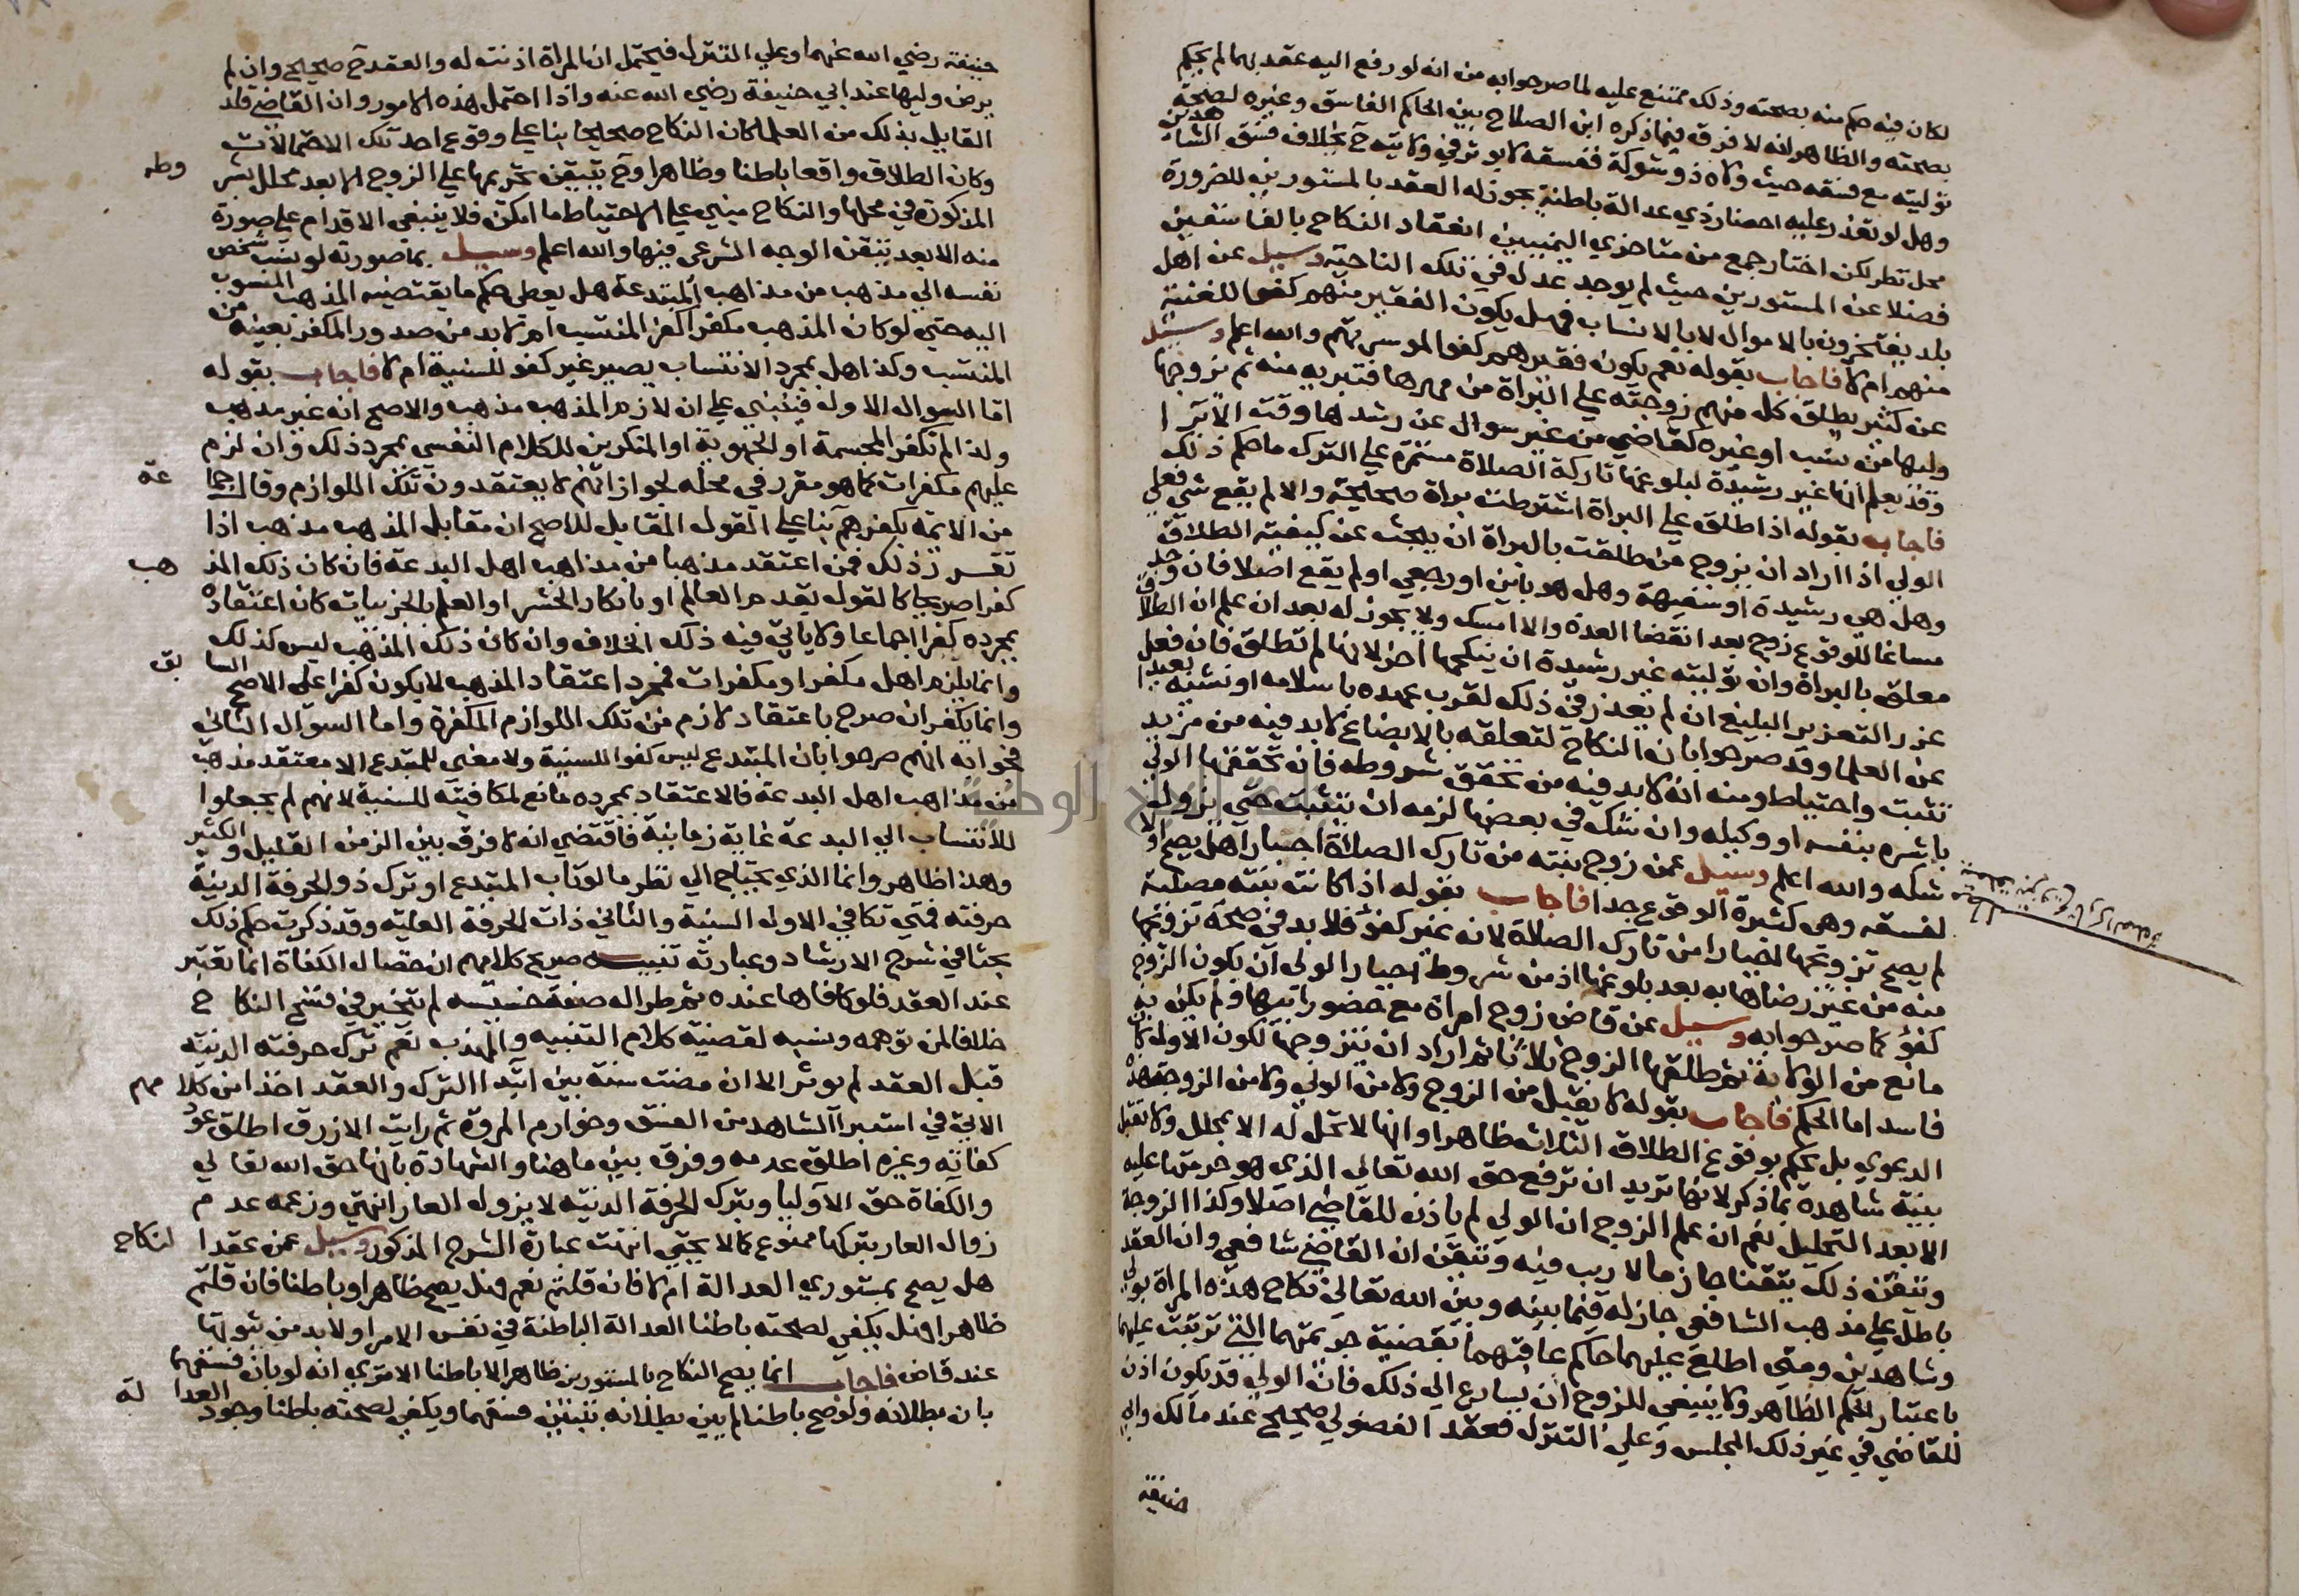 لكان فيه حكم منه بصحته وذلك ممتنع عليه لما صرحوا به من انه لو رفع اليه عقد بهما لم يحكم
بصحته والظاهر انه لا فرق فيما ذكره ابن الصلاح بين الحاكم الفاسق وغيره لصحة
توليته مع فسقه حيث ولاه ذو شوكة ففسقه لا يوثر في ولايته ح بخلاف فسق الشاهدين
وهل لو تعذر عليه احضار ذي عدالة باطنة يجوز له العقد بالمستورين للضرورة
محل نظر لكن اختار جمع من متاخري اليمنيين انعقاد النكاح بالفاسقين
فضلا عن المستورين حيث لم يوجد عدل في تلك الناحية وسيل عن اهل
بلد يفتخرون بالاموال لا بالانساب فهل يكون الفقير منهم كفوا للغنية
منهم ام لا فاجاب بقوله نعم يكون فقيرهم كفوا لموسرتهم والله اعلم وسيل
عن كثير يطلق كل منهم زوجته على البراة من مهرها فتبريه منه ثم يزوجها
وليها من نسب او غيره كقاضي من غير سوال عن رشدها وقت الابرا
وقد يعلم انها غير رشيدة لبلوغها تاركة الصلاة مستمرة على الترك ما حكم ذلك
فاجاب بقوله اذا طلق على البراة اشترطت براة صحيحة والا لم يقع شي فعلى
الولي اذا اراد ان يزوج من طلقت بالبراة ان يبحث عن كيفية الطلاق
وهل هي رشيدة او سفيهة وهل هو باين او رجعي او لم يقع اصلا فان وجد
مساغا للوقوع زوج بعد انقضا العدة والا امسك ولا يجوز له بعد ان علم ان الطلاق
معلق بالبراة وان موليته غير رشيدة ان ينكحها اخر لانها لم تطلق فان فعل
عزر التعزير البليغ ان لم يعذر في ذلك لقرب عهده باسلامه او نشئه بعيدا
عن العلما وقد صرحوا بان النكاح لتعلقه بالابضاع لا بد فيه من مزيد
تثبت واحتياط ومنه انه لا بد فيه من تحقق شروطه فان تحققها الولي
باشره بنفسه او وكيله وان شك في بعضها لزمه ان يتثبت حتى يزول
شكه والله اعلم وسيل عمن زوج بنته من تارك الصلاة اجبارا هل يصح او لا
لفسقه وهي كثيرة الوقوع جدا فاجاب بقوله اذا كانت بنته مصلية
لم يصح تزويجها اجبارا من تارك الصلاة لانه غير كفو فلا بد في صحة تزويجها
منه من غير رضاها به بعد بلوغها اذ من شروط اجبار الولي ان يكون الزوج
كفؤ كما صرحوا به وسيل عن قاض زوج امراة مع حضور ابيها ولم يكن به
مانع من الولاية ثم طلقها الزوج ثلاثا ثم اراد ان يتزوجها لكون الاول كان
فاسدا ما الحكم فاجاب بقوله لا يقبل من الزوج ولا من الولي ولا من الزوجة هذه
الدعوي بل يحكم بوقوع الطلاق الثلاث ظاهرا وانها لا تحل له الا بمحلل ولا تقبل
بينة شاهدة بما ذكر لانها تريد ان ترفع حق الله تعالي الذي هو حرمتها عليه
الا بعد التحليل نعم ان علم الزوج ان الولي لم ياذن للقاضي اصلا وكذا الزوجة
وتيقن ذلك يقينا جازما لا ريب فيه وتيقن ان القاضي شافعي وان العقد
باطل على مذهب الشافعي جاز له فيما بينه وبين الله تعالى نكاح هذه المراة بولي
وشاهدين ومتى اطلع عليهما حاكم عاقبهما بقضية جريمتهما التي ترتبت عليهما
باعتبار الحكم الظاهر ولا ينبغي للزوج ان يسارع الى ذلك فان الولي قد يكون اذن
للقاضي في غير ذلك المجلس وعلى التنزل فعقد الفضولي صحيح عند مالك وابي
حنيفة
حنيفة رضي الله عنهما وعلي التنزل فيحتمل ان المراة اذنت له والعقد ح صحيح وان لم
يرض وليها عند ابي حنيفة رضي الله عنه واذا احتمل هذه الامور وان القاضي قلد
القايل بذلك من العلما كان النكاح صحيحا بنا على وقوع احد تلك الاحتمالات
وكان الطلاق واقعا باطنا وظاهرا وح يتيقن تحريمها على الزوج الا بعد محلل بشروطه
المذكورة في محلها والنكاح مبني على الاحتياط ما امكن فلا ينبغي الاقدام على صورة
منه الا بعد تيقن الوجه الشرعي فيها والله اعلم وسيل بما صورته لو نسب شخص
نفسه الي مذهب من مذاهب المبتدعة هل يعطى حكم ما يقتضيه المذهب المنسوب
اليه حتى لو كان المذهب مكفرا كفر المنتسب ام لا بد من صدور المكفر بعينه من
المنتسب وكذا هل بمجرد الانتساب يصير غير كفو للسنية ام لا فاجاب بقوله
اما السوال الاول فينبني على ان لازم المذهب مذهب والاصح انه غير مذهب
ولذا لم تكفر المجسمة او الجهوية او المنكرين للكلام النفسي بمجرد ذلك وان لزم
عليهم مكفرات كما هو مقرر في محله لجواز انهم لا يعتقدون تلك اللوازم وقال جماعة
من الائمة بكفرهم بنا على القول المقابل للاصح ان مقابل المذهب مذهب اذا
تقرر ذلك فمن اعتقد مذهبا من مذاهب اهل البدعة فان كان ذلك المذهب
كفرا صريحا كالقول بقدم العالم او بانكار الحشر او العلم بالجزييات كان اعتقاده
بمجرده كفرا اجماعا ولا ياتي فيه ذلك الخلاف وان كان ذلك المذهب ليس كذلك
وانما يلزم اهل مكفرا ومكفرات فمجرد اعتقاد المذهب لا يكون كفرا على الاصح السابق
وانما يكفر ان صرح باعتقاد لازم من تلك اللوازم المكفرة واما السوال الثاني
فجوابه انهم صرحوا بان المبتدع ليس كفوا للسنية ولا معنى للمبتدع الا معتقد مذهب
من مذاهب اهل البدعة فالاعتقاد بمجرده مانع لمكافيته للسنية لانهم لم يجعلوا
للانتساب الي البدعة غاية زمانية فاقتضي انه لا فرق بين الزمن القليل والكثير
وهذا ظاهر وانما الذي يحتاج الي نظر ما لو تاب المبتدع او ترك ذو الحرفة الدنية
حرفته فمتي تكافي الاول السنية والثاني ذات الحرفة العلية وقد ذكرت حكم ذلك
بحثا في شرح الارشاد وعبارته تنبيه صريح كلامهم ان خصال الكفاة انما تعتبر
عند العقد فلو كافاها عنده ثم طرا له صفة خسيسة لم تتخير في فسخ النكاح
خلافا لمن توهمه ونسبه لقضية كلام التنبيه والمهذب نعم ترك حرفته الدنية
قبل العقد لم يوثر الا ان مضت سنة بين ابتدا الترك والعقد اخذا من كلامهم
الاتي في استبرا الشاهد من الفسق وخوارم المروة ثم رايت الازرق اطلق عود
كفاته وغيره اطلق عدمه وفرق بين ما هنا والشهادة بانها حق الله تعالي
والكفاة حق الاوليا وبترك الحرفة الدنية لا يزول العار انتهي وزعمه عدم
زوال العار بتركها ممنوع كما لا يخفي انتهت عبارة الشرح المذكور وسيل عمن عقدا لنكاح
هل يصح بمستوري العدالة ام لا فان قلتم نعم فهل يصح ظاهرا وباطنا فان قلتم
ظاهرا فهل يكفي لصحته باطنا العدالة الباطنة في نفس الامر او لا بد من ثبوتها
عند قاض فاجاب انما يصح النكاح بالمستورين ظاهرا لا باطنا الا تري انه لو بان فسقهما
بان بطلانه ولو صح باطنا لم يبن بطلانه بتبين فسقهما ويكفي لصحته باطنا وجود العدالة